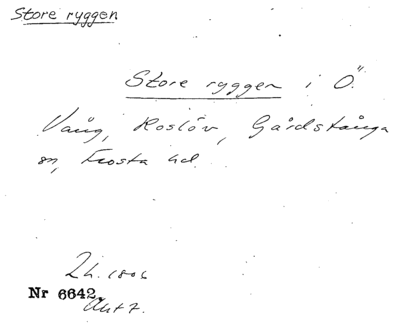 Store ryggen
Store ryggen i Ö.
Vång, Roslöv, Gårdstånga
sn, Frosta hd.
Lh. 1806
Nr 6642.
Akt 7.